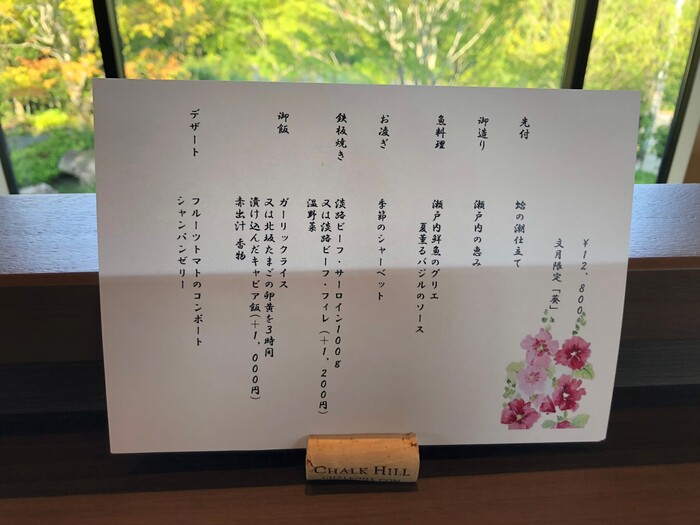 ¥12,800
文月限定「葵」
先付
蛤の潮仕立て
御造り
瀬戸内の恵み
魚料理
瀬戸内鮮魚のグリエ
夏薫るバジルのソース
お凌ぎ
季節のシャーベット
鉄板焼き
淡路ビーフ・サーロイン100g
又は淡路ビーフ・フィレ(+1,200円)
温野菜
御飯
ガーリックライス
又は北坂たまごの卵黄を3時間
漬け込んだキャビア飯(+1,000円)
赤出汁 香物
デザート
フルーツトマトのコンポート
シャンパンゼリー
CHALK HILL